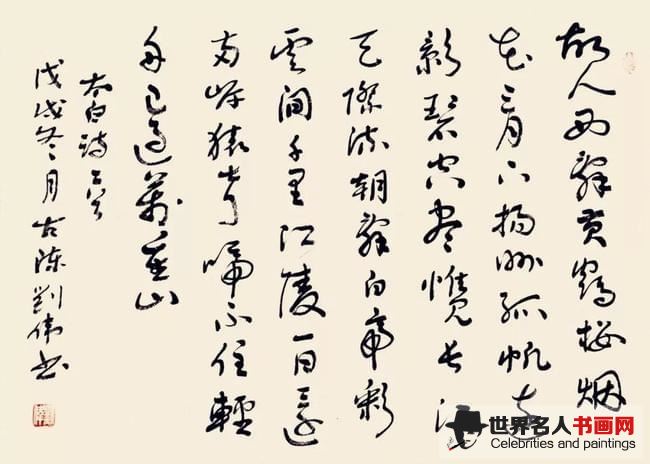 故人西辭黄鶴樓烟
花三月下揚州孤帆遠
影碧空盡惟見長江
天際流朝辭白帝彩
雲間千里江陵一日還
兩岸猿聲啼不住輕
舟已過萬重山
太白詩二首
戊戌冬月古陳劉偉書
世界名人书画网
Celebrities and paintings